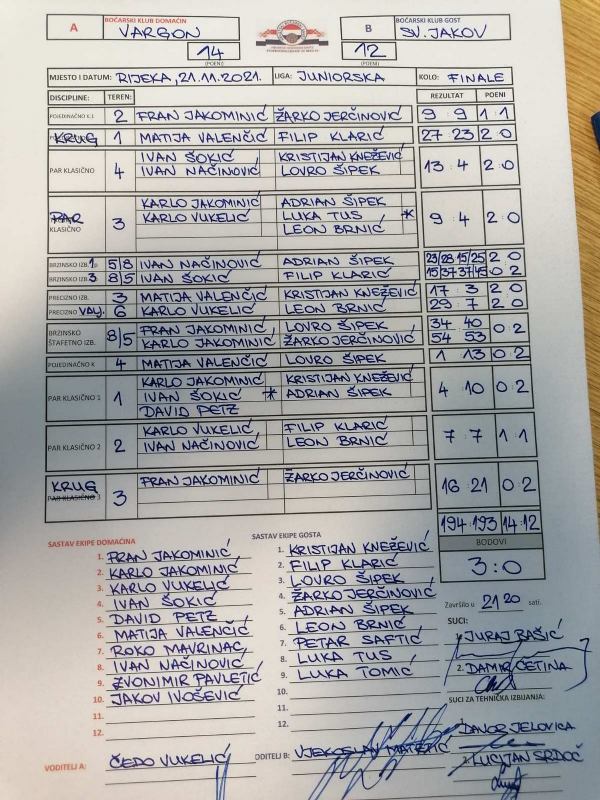 A BOĆARSKI KLUB DOMAĆIN B BOĆARSKI KLUB GOST
VARGON SV. JAKOV
14 12
(POENI) (POENI)
MJESTO I DATUM: RIJEKA, 21.11.2021. LIGA: JUNIORSKA KOLO: FINALE
DISCIPLINE: TEREN: REZULTAT POENI
POJEDINAČNO K.I. 2 FRAN JAKOMINIĆ ŽARKO JERČINOVIĆ 9 : 9 1 : 1
KRUG 1 MATIJA VALENČIĆ FILIP KLARIĆ 27 : 23 2 : 0
PAR KLASIČNO 4 IVAN ŠOKIĆ KRISTIJAN KNEŽEVIĆ 13 : 4 2 : 0
IVAN NAČINOVIĆ LOVRO ŠIPEK
PAR KLASIČNO 3 KARLO JAKOMINIĆ ADRIAN ŠIPEK 9 : 4 2 : 0
KARLO VUKELIĆ LUKA TUS *
LEON BRNIĆ
BRZINSKO IZB. 1 5/8 IVAN NAČINOVIĆ ADRIAN ŠIPEK 23/28 : 15/25 2 : 0
BRZINSKO IZB. 3 8/5 IVAN ŠOKIĆ FILIP KLARIĆ 15/37 : 37/45 0 : 2
PRECIZNO IZB. 3 MATIJA VALENČIĆ KRISTIJAN KNEŽEVIĆ 17 : 3 2 : 0
PRECIZNO VALJ. 6 KARLO VUKELIĆ LEON BRNIĆ 29 : 7 2 : 0
BRZINSKO ŠTAFETNO IZB. 8/5 FRAN JAKOMINIĆ LOVRO ŠIPEK 34 : 40 0 : 2
KARLO JAKOMINIĆ ŽARKO JERČINOVIĆ 54 53
POJEDINAČNO K 4 MATIJA VALENČIĆ LOVRO ŠIPEK 1 : 13 0 : 2
PAR KLASIČNO 1 1 KARLO JAKOMINIĆ KRISTIJAN KNEŽEVIĆ 4 : 10 0 : 2
IVAN ŠOKIĆ * ADRIAN ŠIPEK
DAVID PETZ
PAR KLASIČNO 2 2 KARLO VUKELIĆ FILIP KLARIĆ 7 : 7 1 : 1
IVAN NAČINOVIĆ LEON BRNIĆ
KRUG 3 FRAN JAKOMINIĆ ŽARKO JERČINOVIĆ 16 : 21 0 : 2
PAR KLASIČNO 3
194 : 193 14 : 12
BODOVI
3 : 0
SASTAV EKIPE DOMAĆINA
1. FRAN JAKOMINIĆ
2. KARLO JAKOMINIĆ
3. KARLO VUKELIĆ
4. IVAN ŠOKIĆ
5. DAVID PETZ
6. MATIJA VALENČIĆ
7. ROKO MAVRINAC
8. IVAN NAČINOVIĆ
9. ZVONIMIR PAVLETIĆ
10. JAKOV IVOŠEVIĆ
11.
12.
SASTAV EKIPE GOSTA
1. KRISTIJAN KNEŽEVIĆ
2. FILIP KLARIĆ
3. LOVRO ŠIPEK
4. ŽARKO JERČINOVIĆ
5. ADRIAN ŠIPEK
6. LEON BRNIĆ
7. PETAR SAFTIĆ
8. LUKA TUS
9. LUKA TOMIĆ
10.
11.
12.
Završilo u 21 20 sati.
SUCI:
1. JURAJ BAŠIĆ
2. DAMIR ČETINA
SUCI ZA TEHNIČKA IZBIJANJA:
DAVOR JELOVICA
2. LUCIJAN SRDOČ
VODITELJ A: ČEDO VUKELIĆ
VODITELJ B: VJEKOSLAV